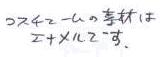 コスチュームの素材は
エナメルです。